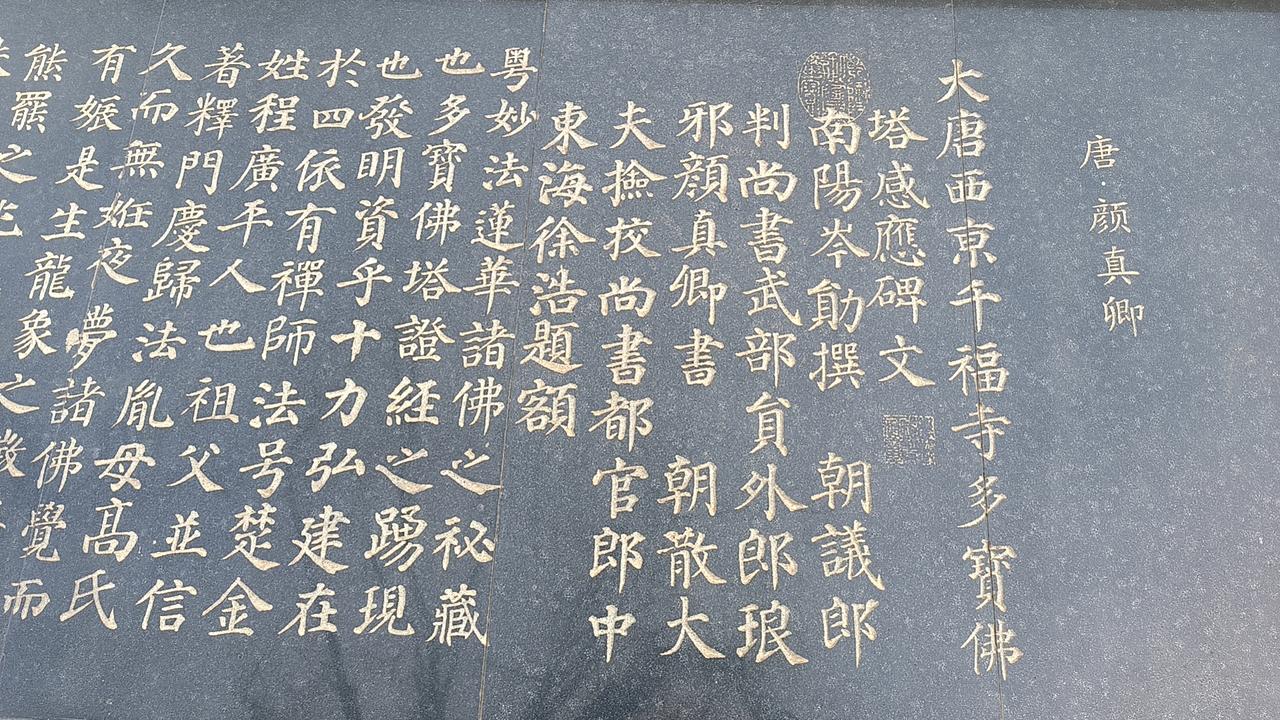 唐·颜真卿
大唐西京千福寺多寶佛
塔感應碑文
南陽岑勛撰 朝議郎
判尚書武部員外郎琅
邪顏真卿書 朝散大
夫撿挍尚書都官郎中
東海徐浩題額
粤妙法蓮華諸佛之祕藏
也多寶佛塔證經之踴現
也發明資乎十力弘建在
於四依有禪師法号楚金
姓程廣平人也祖父並信
著釋門慶歸法胤母高氏
久而無妊夜夢諸佛覺而
有娠是生龍象之
熊羆之